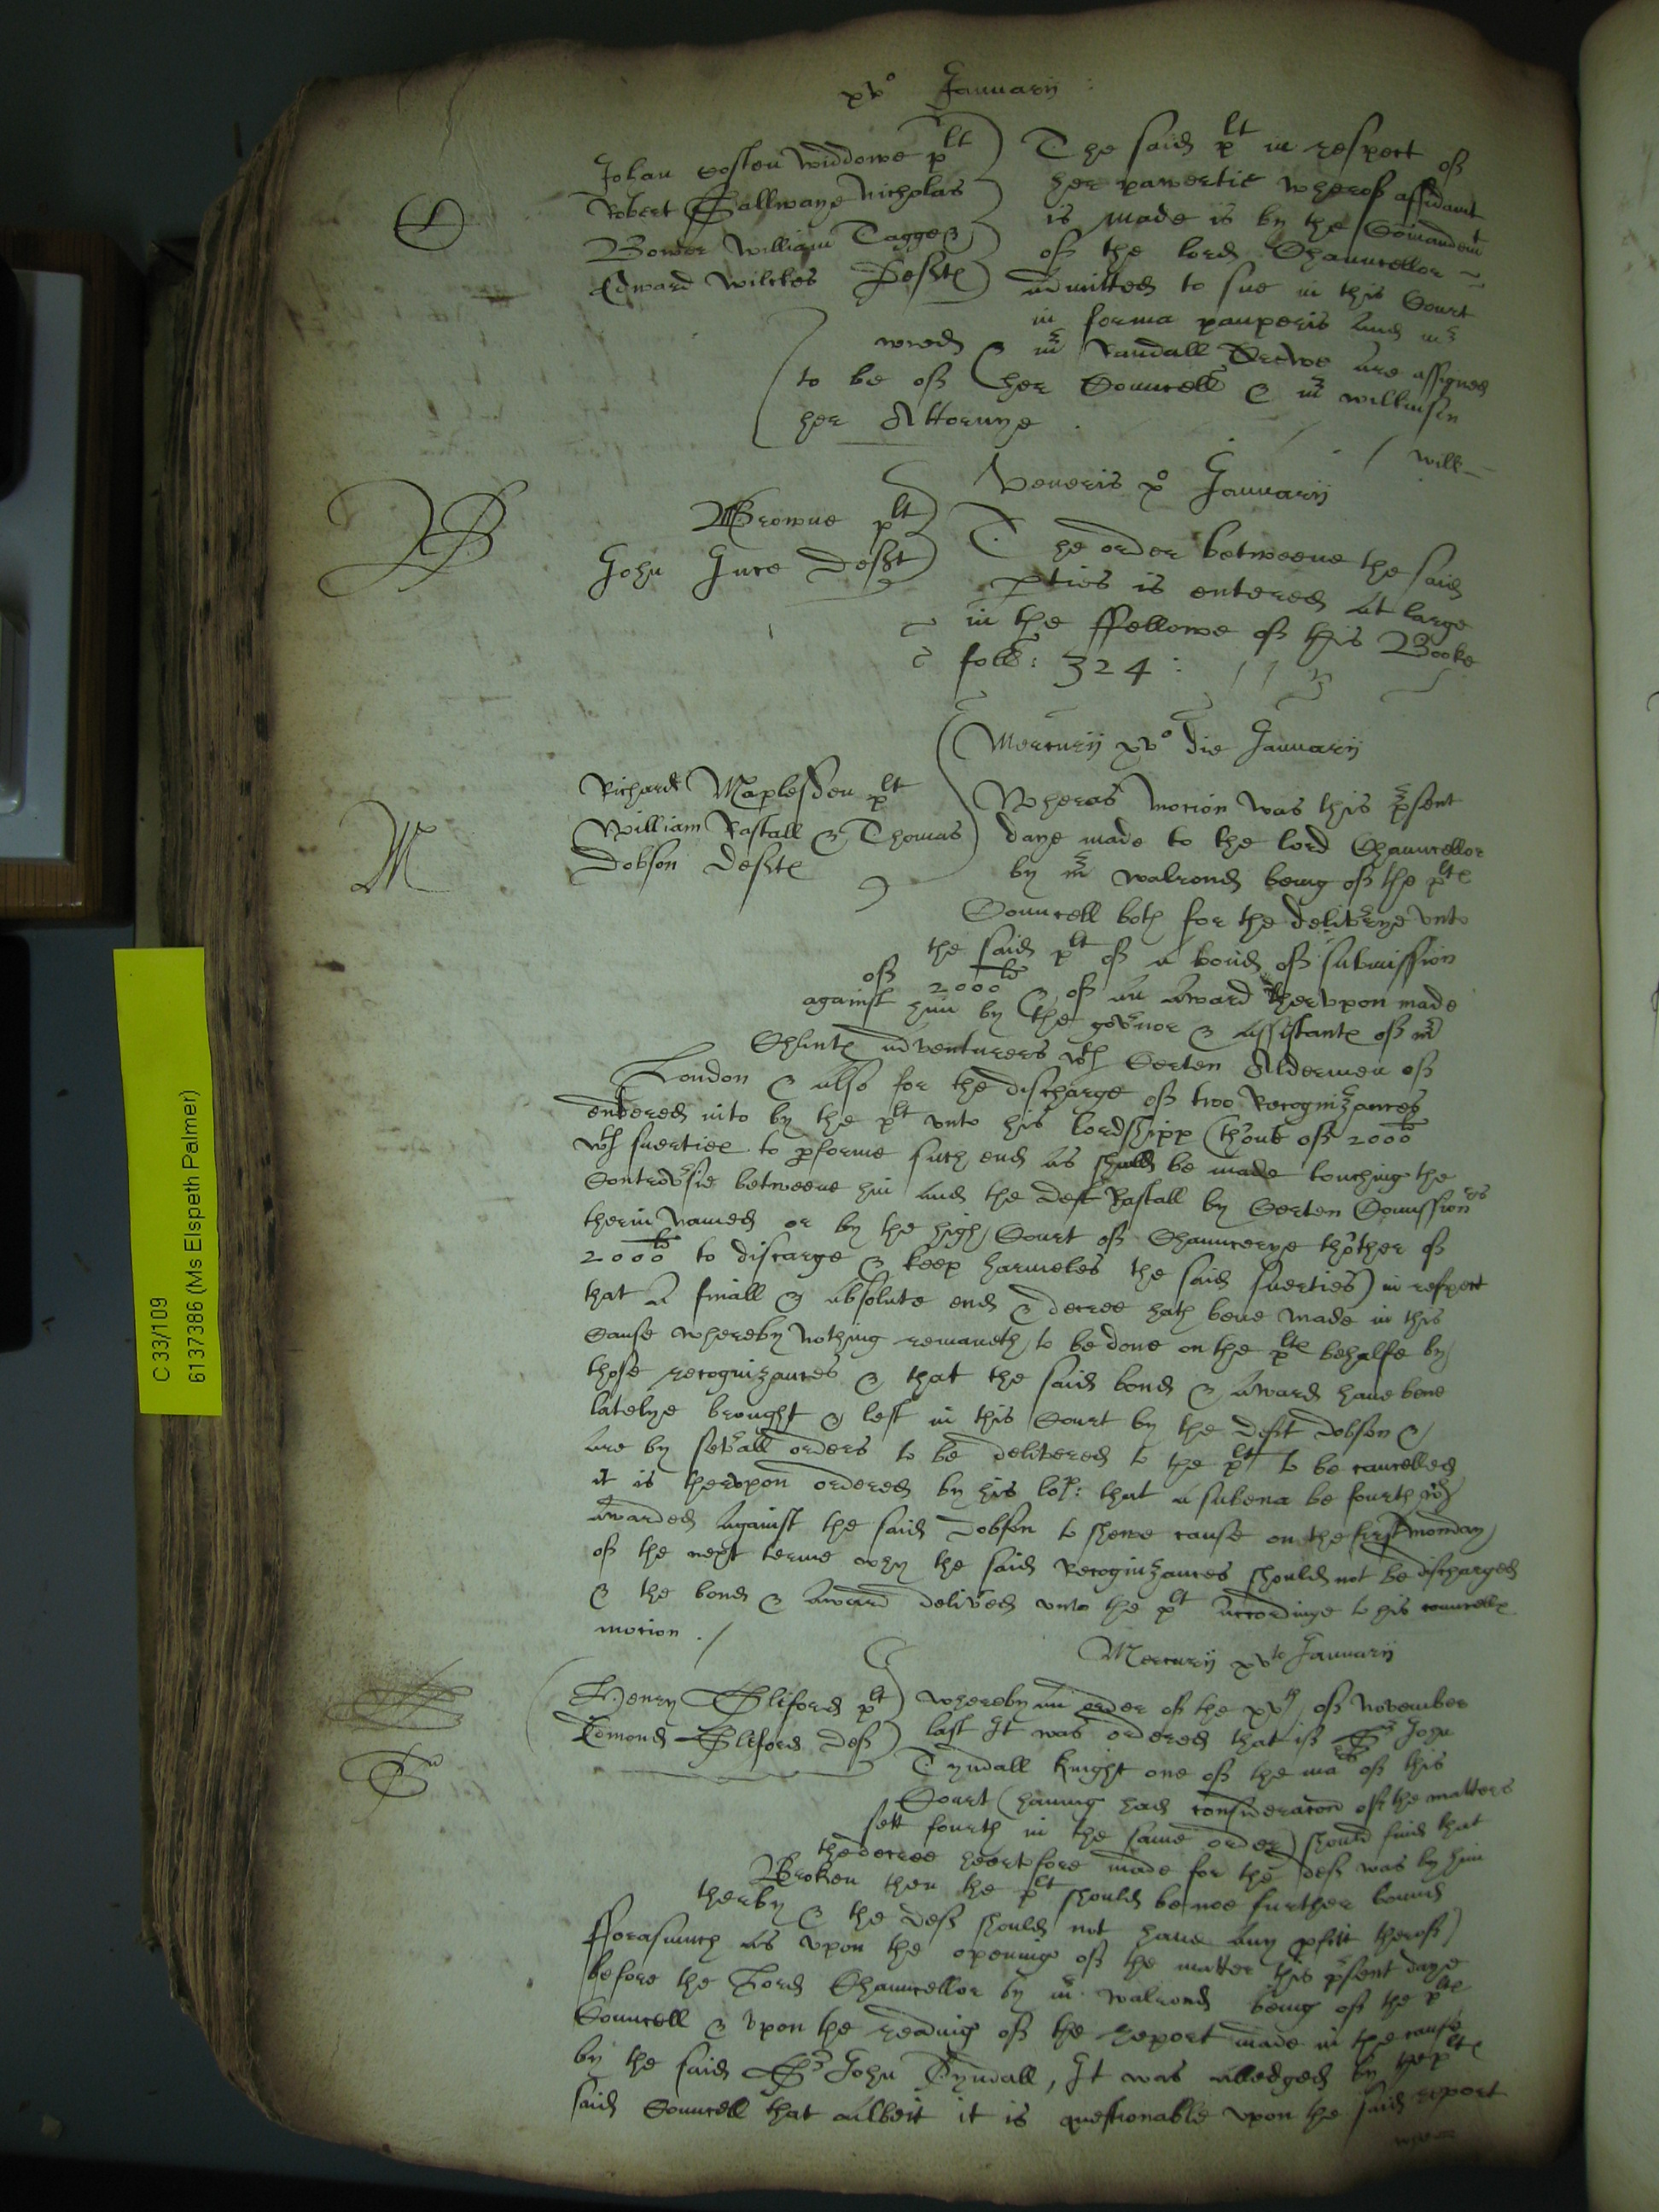 xv° January
Johan Costen widdowe plt
Robert Gallwaye Nicholas
Bower William Tagge &
Edward Wilckes Deftes
The said plt in respect of
her povertie wherof affidavit
is made is by the Comandemt
of the lord Chauncellor
admitted to sue in this Court
in forma pauperis and mr
wood & mr Randall Crewe are assigned
to be of her Councell & mr wilkinson
her Attornye
will
Veneris x° Januarij
Browne plt
John Juce Deft
The order betweene the said
pties is entered at large
in the ffellowe of this Booke
foll: 324 :
Mercurij xv° die Januarij
Richard Maplesden plt
William Rastall & Thomas
Dobson Deftes
Wheras mocion was this psent
daye made to the lord Chauncellor
by mr walrond being of the pltes
Councell both for the deliverye vnto
the said plt of a bond of submission
of 2000li & of an award thervpon made
against him by the govnor & assistantes of mr
Chantes adventurers wth Certen Aldermen of
London & also for the discharge of two Recognizances
entered into by the plt vnto his lordshipp (thone of 2000li
wth suerties to pforme such end as should be made touching the
Controvsie betweene him and the Deft Rastall by Certen Comissioners
therin named or by the high Court of Chauncerye thother of
2000li to discarge & keep harmeles the said suerties) in respect
that a finall & absolute end & decree hath bene made in this
Cause whereby nothing remaneth to be done on the pltes behalfe by
those recognizances & that the said bond & award have bene
latelye brought & left in this Court by the Deft Dobson &
are by sevall orders to be delivered to the plt to be cancelled
it is thervpon ordered by his lop: that a subena be fourth wth
awarded against the said Dobson to shewe cause on the first monday
of the next terme why the said Recognizances should not be discharged
& the bond & award delived vnto the plt accordinge to his councelles
mocion ./
Mercurij xvto Januarij
Henry Gliford plt
Edmond Gliford Def
whereby an order of the xvth of November
last It was ordered that if Sr John
Tyndall knight one of the mars of this
Court (having had consideracon of the matters
sett fourth in the same order) should find that
the decree heertofore made for the def was by him
Broken then the plt should be noe further bound
therby & the def should not have any pfitt therof)
fforasmuch as vpon the opening of the matter this psent daye
before the Lord Chauncellor by mr walrond being of the pltes
Councell & vpon the reading of the report made in the cause
by the said Sr John Tyndall, It was alledged by the pltes
said Councell that albeit it is questionable vpon the said report
C 33/109
6137386 (Ms Elspeth Palmer)